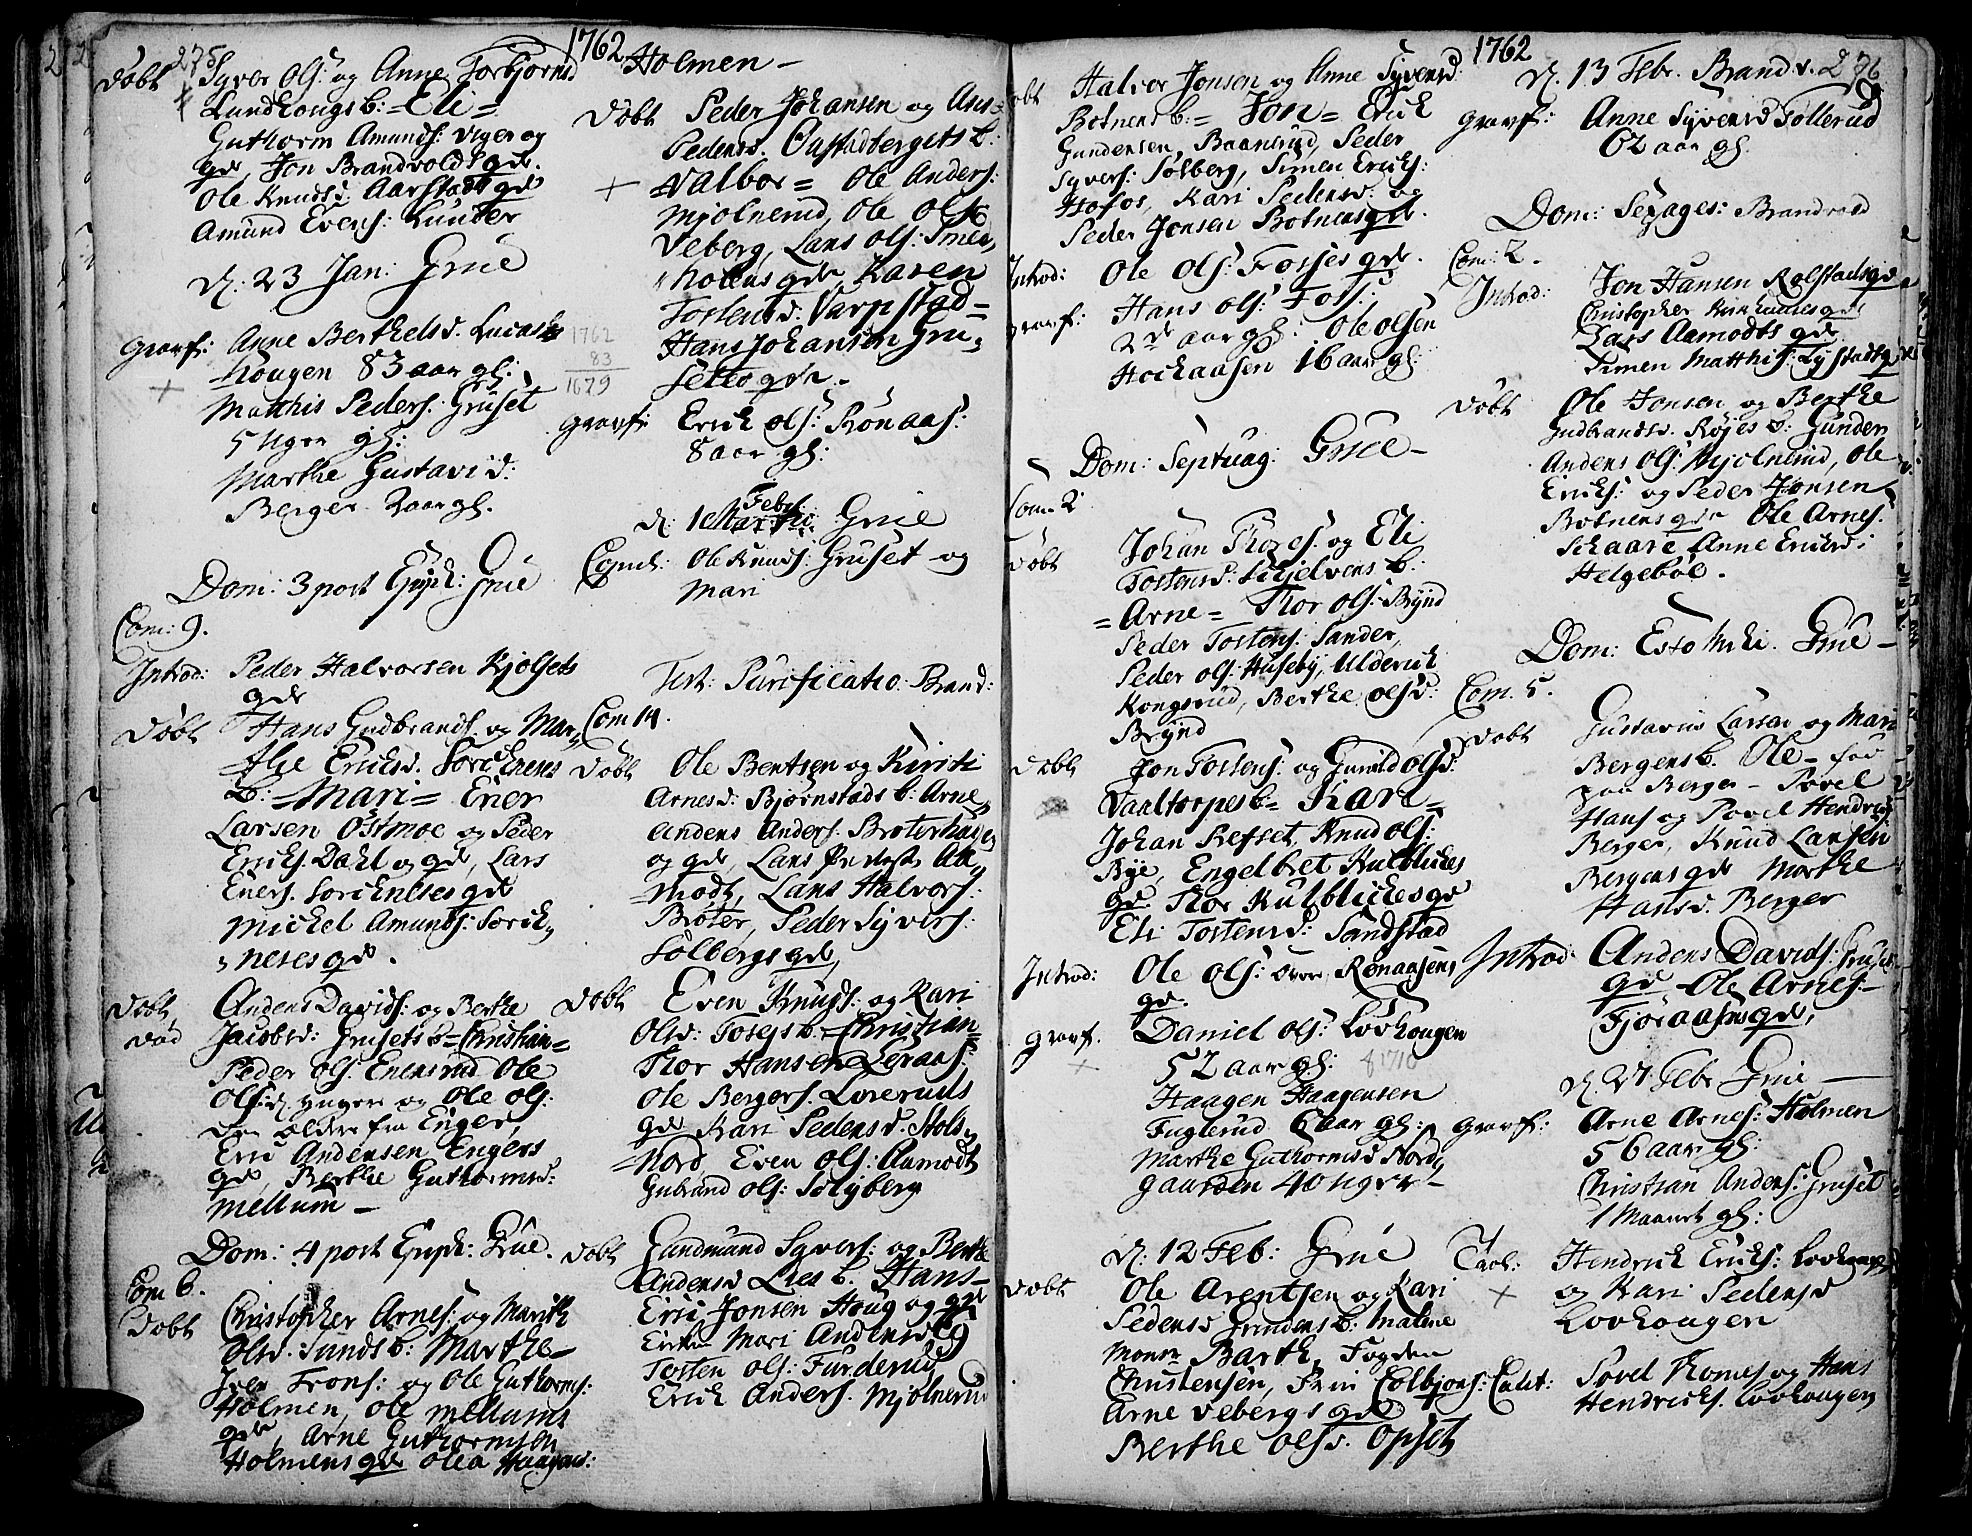 275
1762
Døbt Syver Ols: og Anne Torbjørnsd
Lundhougs b: = Eli =
Guthorm Amunds: Viger og
gde, Jon Brandvolds gde.
Ole Knuds: Aarstads gde
Amund Evens: Kunder
d. 23 Jan: Grue
Graf: Anne Berthelsd. Lucas
hougen 83 aar gl:
Matthis Peders: Gruset
5 uger gl:
Marthe Gustavi d:
Berger 2 aar gl.
Dom: 3 post Epiph: Grue
Com: 9.
Introd: Peder Halvorsen Kjølsets
gde
Døbt Hans Gudbrands: og Mar
the Ericksd. Sorcknes
b: = Mari = Ener
Larsen Østmoe og Peder
Ericks. Dahl og gde, Lars
Eners. Sorckneses gde
Michel Amunds: Sorck
neses gde.
Døbt Anders Davids: og Berthe
død Jacobsd: Grusets b = Christian =
Peder Ols: Enersrud Ole
Ols: d. yngre og Ole Ols:
den ældre fra Enger,
Eric Andersen Engers
gde, Berthe Guthormsd:
Mellum —
Dom: 4 post Epiph: Grue.
Com 6.
Døbt Christopher Arnes: og Marith
Olsd. Sunds b: Marthe —
Iver Trons: og Ole Guthorms:
Holmen, Ole Mellums
gde, Arne Guthormsen
Holmens gde Olea Haagens:
Holmen —
Døbt Peder Johansen og Anne
Pedersd. Opstadbergets b:
= Valbor = Ole Anders:
Mjølnerud, Ole Ols:
Veberg, Lars Ols: Smed
holens gde, Karen
Tostensd. Varpstad =
Hans Johansen Gru
sets gde.
1762
83
1679
Graf: Erick Ols: Rønaas:
8 aar gl:
Febr:
d: 1 Martii Grue
Copul: Ole Knuds: Gruset og
Mari
Fest: Purificatio: Brand:
Com 14.
Døbt Ole Bentsen og Kirsti
Arnesd: Bjørnstads b: Arne
Anders Anders: Broterhagen
og gde, Lars Aa
modt, Lars Halvors:
Brøter, Peder Syvers:
Solbergs gde,
Døbt Even Knuds: og Kari
Olsd: Tosejs b. = Christian =
Thor Hansen Leraas:
Ole Bergers: Løreruds
gde Kari Pedersd. Hols
mord, Even Ols: Aamodt
Gubrand Ols: Solyberg
Døbt Gundmund Syvers: og Berthe
Andersd Lies b. Hans —
Eric Jonsen Houg og gde
Mari Andersd
Tosten Ols: Furderud,
Erick Anders: Mjølnerud
1762
Døbt Halvor Jonsen og Anne Syversd.
Botnens b: = Jon = Erick
Gundersen, Baanerud, Peder
Syvers: Solberg, Simen Ericks:
Hofos, Kari Pedersd: og
Peder Jonsen Botnens gde.
Introd: Ole Ols: Fosses gde.
Graf: Hans Ols: Foss:
2 aar gl: Ole Olsen
Hockaasen 16 aar gl:
Dom: Septuag: Grue —
Com 2
Døbt Johan Thores: og Eli
Tostensd: Skjelvens b:
= Arne = Thor Ols: Brynd
Peder Tostens: Sander,
Peder Ols: Huseby, Ulderick
Kongsrud, Berthe Olsd:
Brynd
Døbt Jon Tostens: og Gunild Olsd:
Vaaltorpes b: = Kari =
Johan Refset, Knud Ols:
Bye, Engelbret Kulblickes
gde Thor Kulblickes gde
Eli Tostensd: Sandstad
Introd: Ole Ols: over Rønaasens
gde.
Graf. Daniel Ols: Lovhougen
52 aar gl: f 1710
Haagen Haagensen
Fuglerud 6 aar gl:
Marthe Guthormsd Nord
gaarden 40 uger —
d: 12 Feb: Grue
Døbt Ole Arentsen og Kari
Pedersd Grindens b: Malene
Monsr Barth, Fogden
Christensen, Frue Colbjøns:
Arne Vebergs gde
Berthe Olsd. Opset
1762
276
d. 13 Febr. Brandv.
Graf: Anne Syversd Tollerud
62 aar gl.
Dom: Sexages: Brandvold
Com: 2.
Introd: Jon Hansen Rolstads gde
Christopher gde
Lars Aamodts gde
Simen Matthis: Lystads gde
Døbt Ole Jonsen og Berthe
Gudbrandsd. Røjes b: Gunder
Anders Ols: Mjølnerud, Ole
Ericks: og Peder Jonsen
Botnens gde Ole Arnes:
Skaare, Anne Ericksd:
Helgebøl.
Dom: Esto Mihi. Grue —
Com: 5.
Døbt Gustavus Larsen og Mari
Bergers b. Ole — fød
paa Berger — Povel
Hans og Povel Hendricks
Berger, Knud Larsen
Bergers gde Marthe
Hansd. Berger
Introd Anders Davids: Grusets
gde Ole Arnes:
Fjøraasens gde,
d. 27 Febr Grue —
Graf: Arne Arnes: Holmen
56 aar gl:
Christian Anders: Gruset
1 Maaned gl:
Trol: Hendrick Ericks: Lovhougen
og Kari Pedersd
Lovhougen
Cavt: Povel Thomes: og Hans
Hendricks. Lovhougen